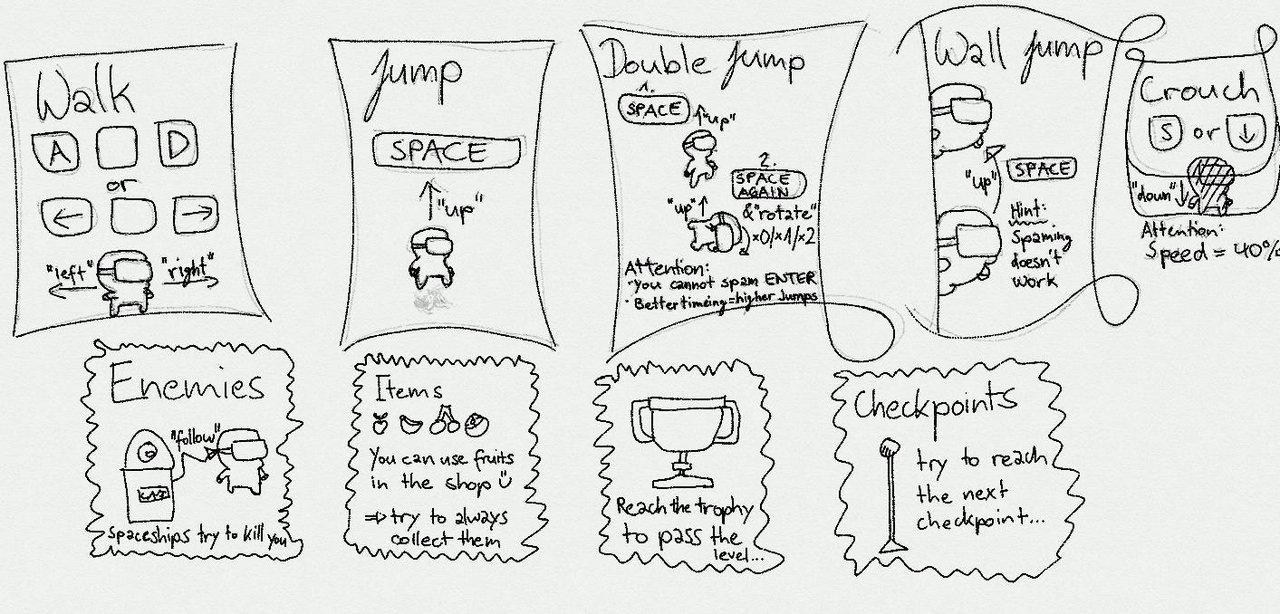 Walk
A D
or
← →
"left" "right"
Jump
SPACE
"up"
Double Jump
1.
SPACE
"up"
2.
SPACE
AGAIN
"up"
& "rotate"
×0/×1/×2
Attention:
· You cannot spam ENTER
· Better timeing = higher Jumps
Wall jump
SPACE
"up"
Hint:
Spaming
doesn't
work
Crouch
S or ↓
"down"
Attention:
Speed = 40%
Enemies
"follow"
spaceships try to kill you
Items
You can use fruits
in the shop
⇒ try to always
collect them
Reach the trophy
to pass the
level...
Checkpoints
try to reach
the next
checkpoint...